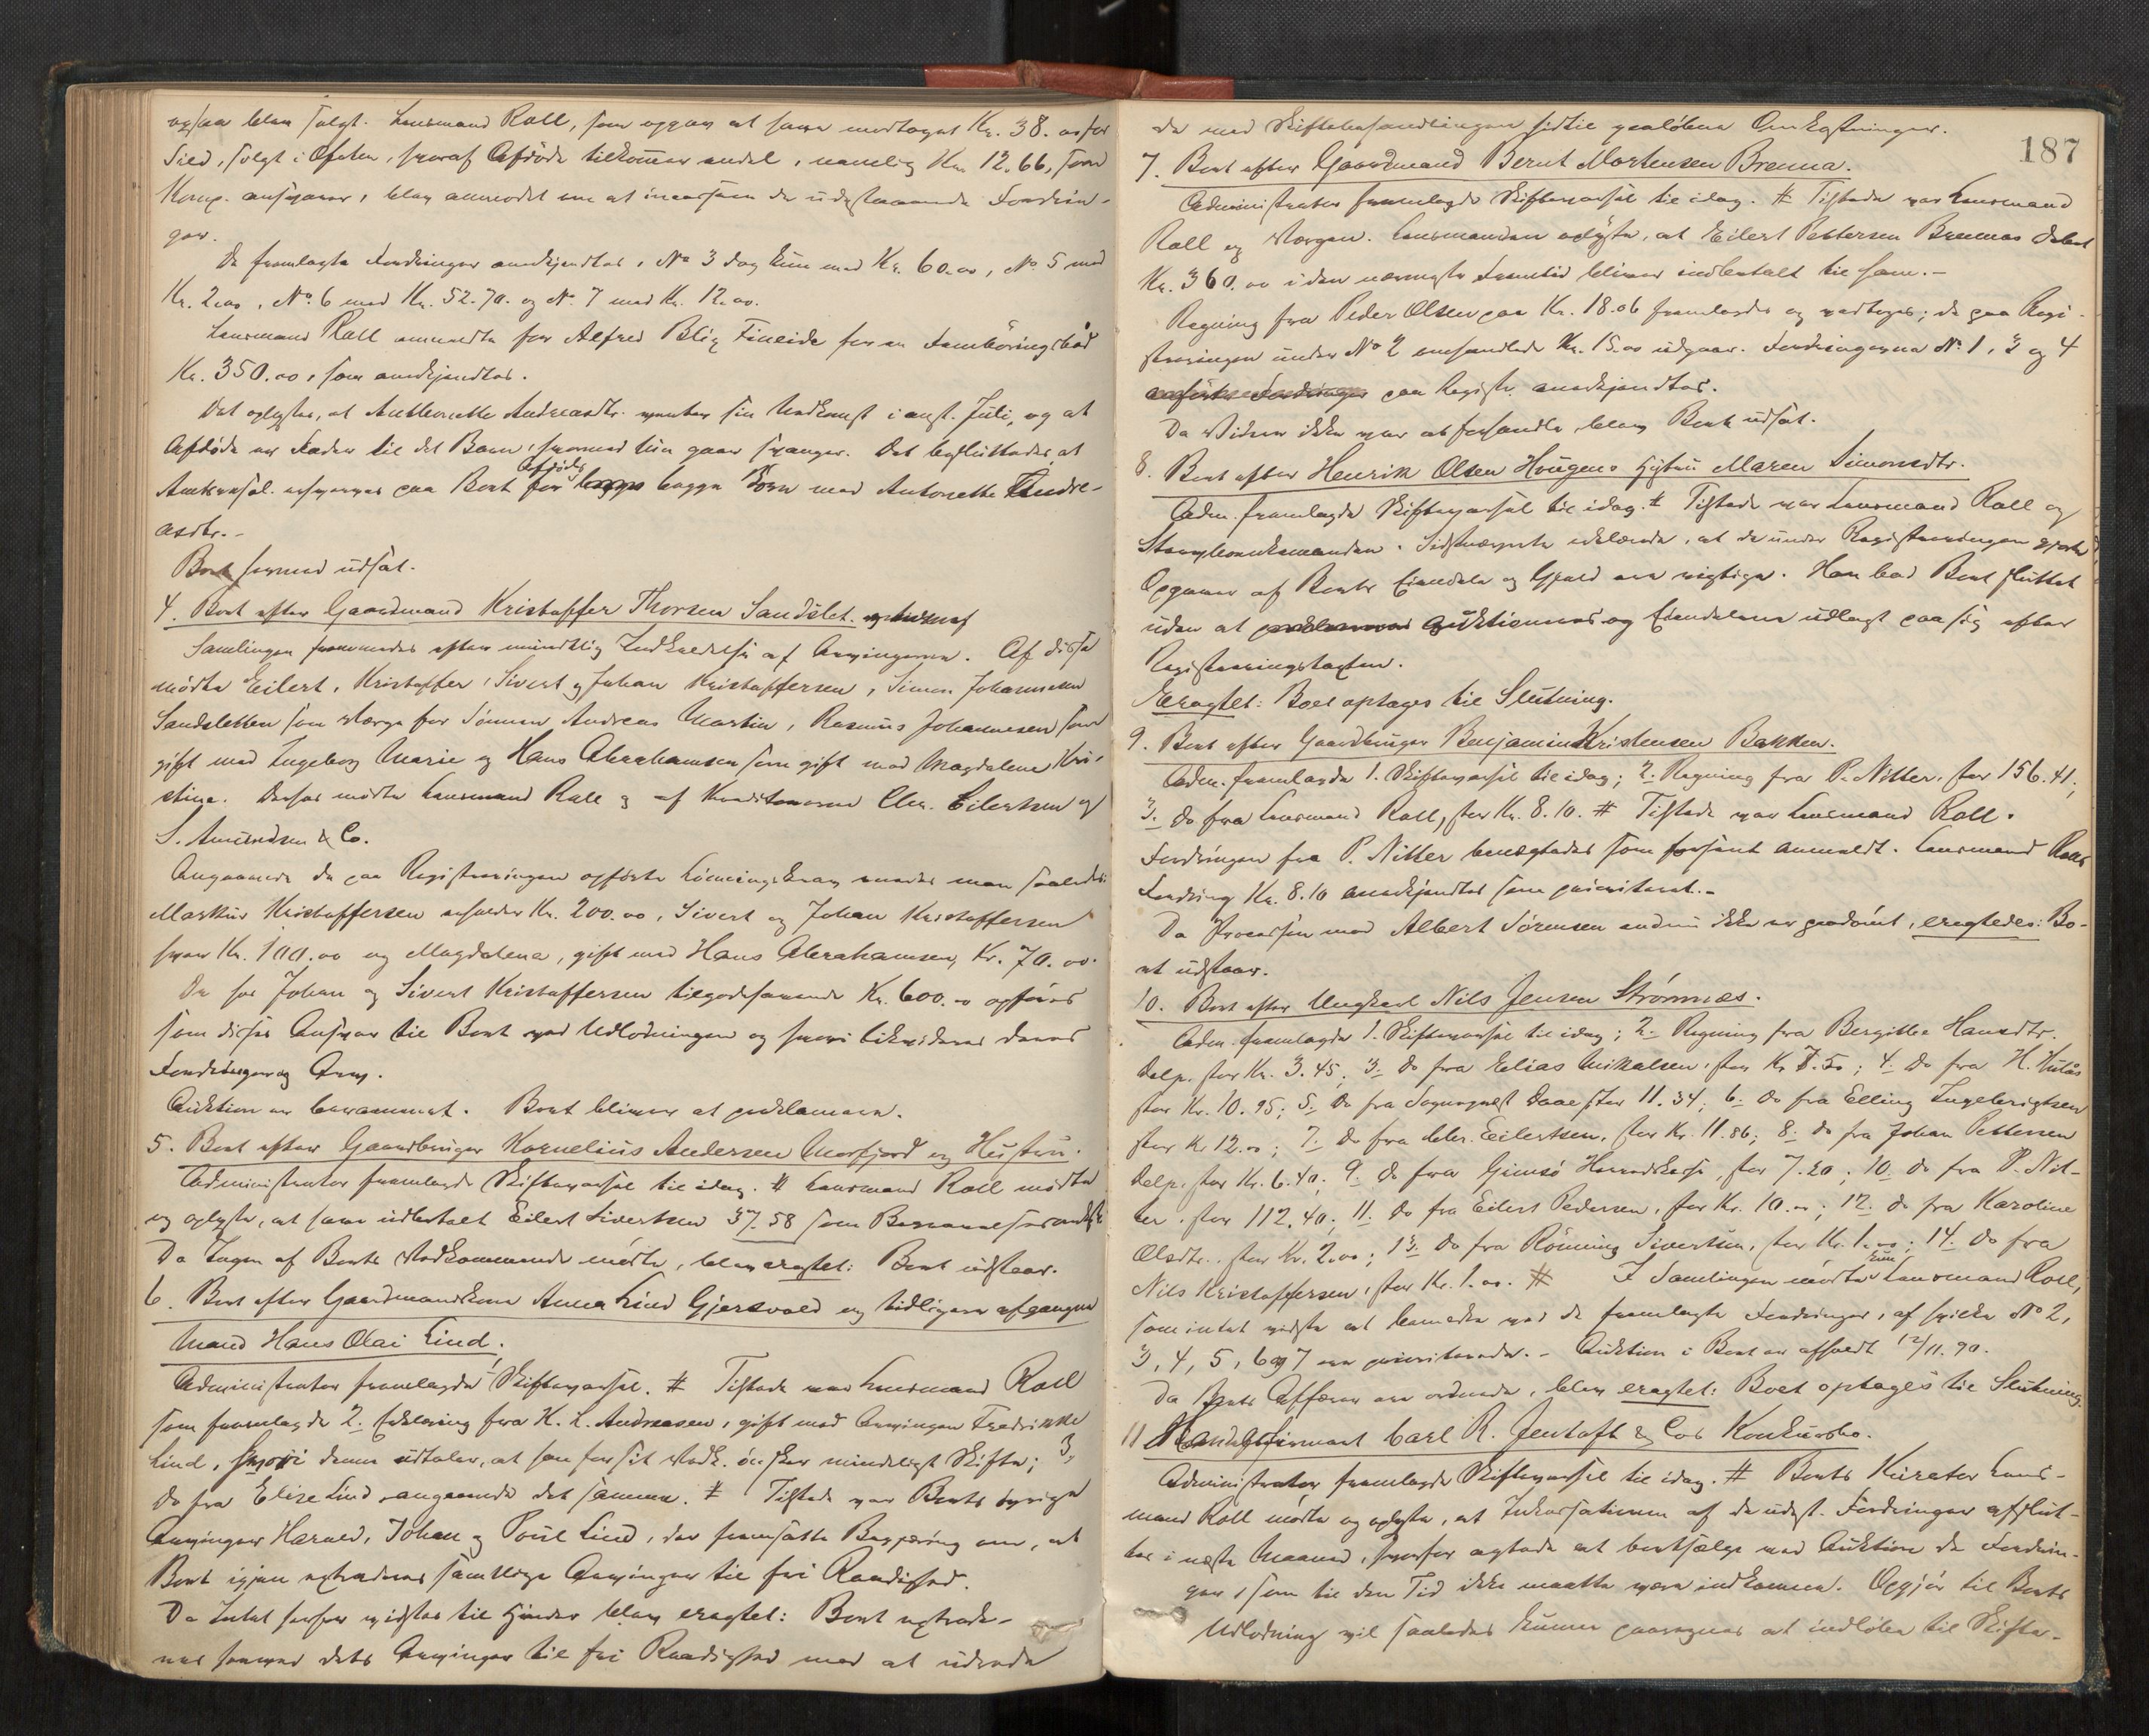 ogsaa blev solgt. Lensmand Roll, som opgav at have modtaget Kr. 38.00 for
Sild, solgt i Ofoten, hvoraf Afdöde tilkommer andel, nemlig Kr. 12.66, som
Komp. ansvarer, blev anmodet om at incassere de udestaaende Fordrin-
ger.
De fremlagte Fordringer anerkjendtes, No 3 dog kun med Kr. 60.00, No 5 med
Kr. 2.00, No. 6 med Kr. 52.70. og No. 7 med Kr. 12.00.
Lensmand Roll anmeldte for Alfred Blix Fineide for en Femböringsbåd
Kr. 350.00, som anerkjendtes.
Det oplystes, at Anthonette Andreasdtr. venter sin Nedkomst i anst. Juli, og at
Afdöde er Fader til det Barn, hvormed hun gaar svanger. Det besluttedes at
paa Boet for Afdödes begge Börn med Antonette Andre-
asdtr.-
Boet hermed udsat.
4. Boet efter Gaardmand Kristoffer Thorsen Sandslet.
Samlingen fremmedes efter mundtlig Indkaldelse af Arvingerne. Af disse
mödte Eilert, Kristoffer, Sivert og Johan Kristoffersen, Simon Johannesen
Sandsletten som Værge for Sönnen Andreas Martin, Rasmus Johannesen som
gift med Ingeborg Marie og Hans Abrahamsen som gift med Magdalena Kri-
stine. Derhos mödte Lensmand Roll og af Kreditorerne Chr. Eilertsen og
S. Amundsen & Co.
Angaaende de paa Registreringen opförte Lönningskrav enedes man saaledes:
Markus Kristoffersen erholder Kr. 200.00, Sivert og Johan Kristoffersen
hver Kr. 100.00 og Magdalena, gift med Hans Abrahamsen, Kr. 70.00.
De hos Johan og Sivert Kristoffersen tilgodehavende Kr. 600.00 opföres
som disses Ansvar til Boet ved Udlodningen og hvori likvideres deres
Fordringer og Arv.
Auktion er berammet. Boet bliver at proklamere.
5. Boet efter Gaardbruger Kornelius Andersen Morfjord og Hustru.
Administrator fremlagde Skiftevarsel til idag. # Lensmand Roll mödte
og oplyste, at have udbetalt Eilert Sivertsen 37.58 som
Da Ingen af Boets Vedkommende mödte, blev eragtet: Boet udstaar.
6. Boet efter Gaardmandskone Anna Lind Gjersvold og tidligere afgangne
Mand Hans Olai Lind.
Administrator fremlagde Skiftevarsel. # Tilstede var Lensmand Roll
som fremlagde 2. Erklæring fra K. L. Andreasen, gift med Arvingen Fredrikke
Lind, hvori denne udtaler, at han for sit Vedk. önsker mindeligt Skifte; 3.
Do fra Elise Lind angaaende det samme. # Tilstede var Boets övrige
Arvinger Harald, Johan og Poul Lind, der fremsatte Begjæring om, at
Boet igjen extraderes samtlige Arvinger til fri Raadighed.
Da Intet herfor vidstes til Hinder blev eragtet: Boet extrade-
res herved dets Arvinger til fri Raadighed mod at udrede
187
de med Skiftebehandlingen hidtil paalöbne Omkostninger.
7. Boet efter Gaardmand Bernt Mortensen Brenna.
Administrator fremlagde Skiftevarsel til idag. # Tilstede var Lensmand
Roll og Værgen. Lensmanden oplyste, at Eilert Pettersen Brennas Debet
Kr. 360.00 i den nærmeste Fremtid bliver indbetalt til ham.-
Regning fra Peder Olsen paa Kr. 18.06 fremlagdes og vedtoges; de paa Regi-
streringen under No 2 omhandlede Kr. 15.00 udgaar. Fordringerne No. 1, 3 og 4
paa Registr. anerkjendtes.
Da Videre ikke var at forhandle, blev Boet udsat.
8. Boet efter Henrik Olsen Hougens Hustru Maren Simonsdtr.
Adm. fremlagde Skiftevarsel til idag. # Tilstede var Lensmand Roll og
Stervboenkemanden. Sidstnævnte erklærede, at de under Registreringen gjorte
Opgaver af Boets Eiendele og Gjæld ere rigtige. Han bad Boet sluttet
uden at Auktioneres og Eiendelene udlagt paa sig efter
Registreringstaxten.
Eragtet: Boet optages til Slutning.
9. Boet efter Gaardbruger Benjamin Kristensen Bakken.
Adm. fremlagde 1. Skiftevarsel til idag; 2. Regning fra P. Nitter, stor 156.41;
3. Do fra Lensmand Roll, stor Kr. 8.10. # Tilstede var Lensmand Roll.
Fordringen fra P. Nitter benegtedes som for sent anmeldt. Lensmand Rolls
Fordring Kr. 8.10 anerkjendtes som prioriteret.-
Da Processen mod Albert Sörensen endnu ikke er paadömt, eragtedes: Bo-
et udstaar.
10. Boet efter Ungkarl Nils Jensen Strömnæs.
Adm. fremlagde 1. Skiftevarsel til idag; 2. Regning fra Bergitte Hansdtr.
Delp. stor Kr. 3.45; 3. Do fra Elias Mikalsen, stor Kr 7.50; 4. Do fra H.
stor Kr. 10.95; 5. Do fra Sogneprest Daae stor 11.34; 6. Do fra Elling Ingebrigtsen
stor Kr 12.00; 7. Do fra Chr. Eilertsen, stor Kr. 11.86; 8. Do fra Johan Pettersen
Delp. stor Kr. 6.40; 9. Do fra Gimsö Herredskasse, stor 7.20; 10. Do fra P. Nit-
ter, stor 112.40; 11. Do fra Eilert Pedersen, stor Kr. 10.00; 12. Do fra Karoline
Olsdtr. stor Kr. 2.00; 13. Do fra Rönning Sivertsen, stor Kr. 1.00; 14. Do fra
Nils Kristoffersen, stor Kr. 1.00. # I Samlingen mödte kun Lensmand Roll,
som intet vidste at bemerke ved de fremlagte Fordringer, af hvilke No 2,
3, 4, 5, 6 og 7 ere prioriterede.- Auktion i Boet er afholdt 12/11.90.
Da Boets Affærer ere ordnede, blev eragtet: Boet optages til Slutning.
11 Handelsfirmaet Carl R. Jentoft & Cos Konkursbo.
Administrator fremlagde Skiftevarsel til idag. # Boets Kurator Lens-
mand Roll mödte og oplyste, at Inkassationen af de udest. Fordringer afslut-
tes i næste Maaned, hvorfor agtede at bortsælge ved Auktion de Fordrin-
ger, som til den Tid ikke maatte være indkomne. Opgjör til Boets
Udlodning vil saaledes kunne paaregnes at indlöbe til Skifte-